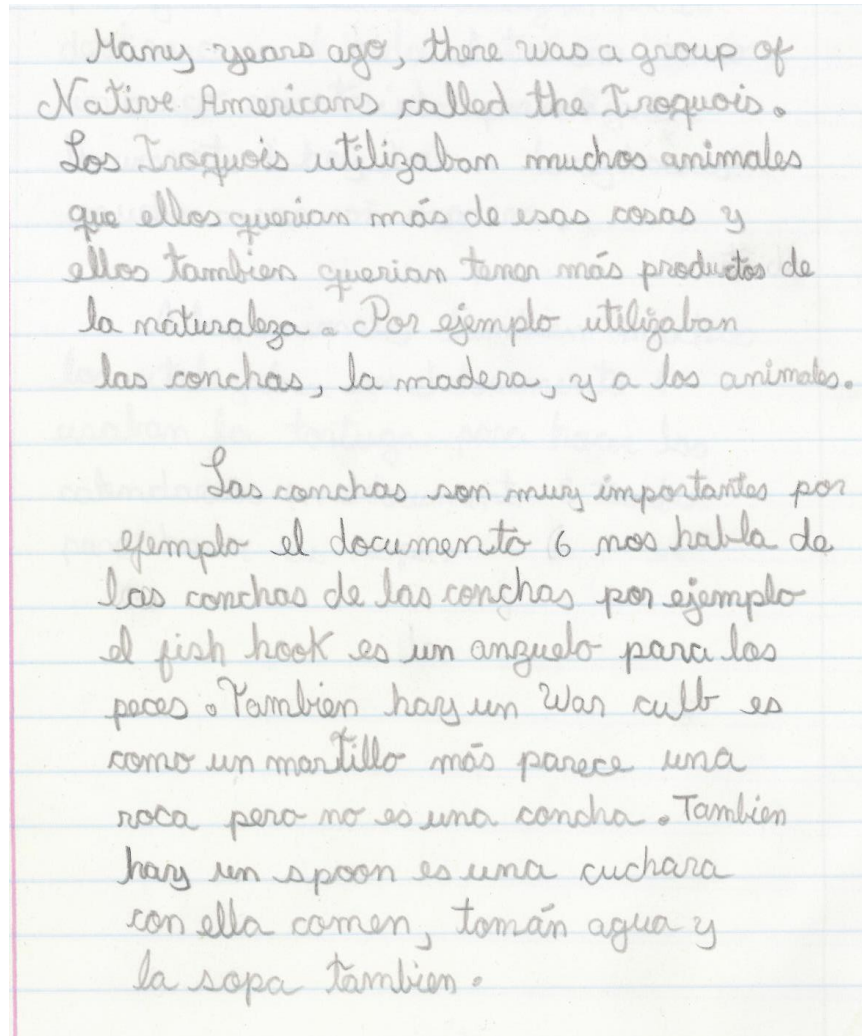 Many years ago, there was a group of
Native Americans called the Iroquois.
Los Iroquois utilizaban muchos animales
que ellos querian más de esas cosas y
ellos tambien querian tener más productos de
la naturaleza. Por ejemplo utilizaban
las conchas, la madera, y a los animales.
Las conchas son muy importantes por
ejemplo el documento 6 nos habla de
las conchas de las conchas por ejemplo
el fish hook es un anzuelo para los
peces. Tambien hay un War culb es
como un martillo más parece una
roca pero no es una concha. Tambien
hay un spoon es una cuchara
con ella comen, tomán agua y
la sopa tambien.